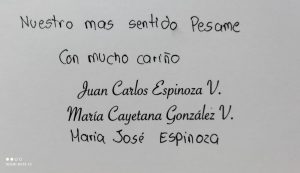 Nuestro mas sentido Pesame
Con mucho cariño
Juan Carlos Espinoza V.
María Cayetana González V.
Maria José Espinoza